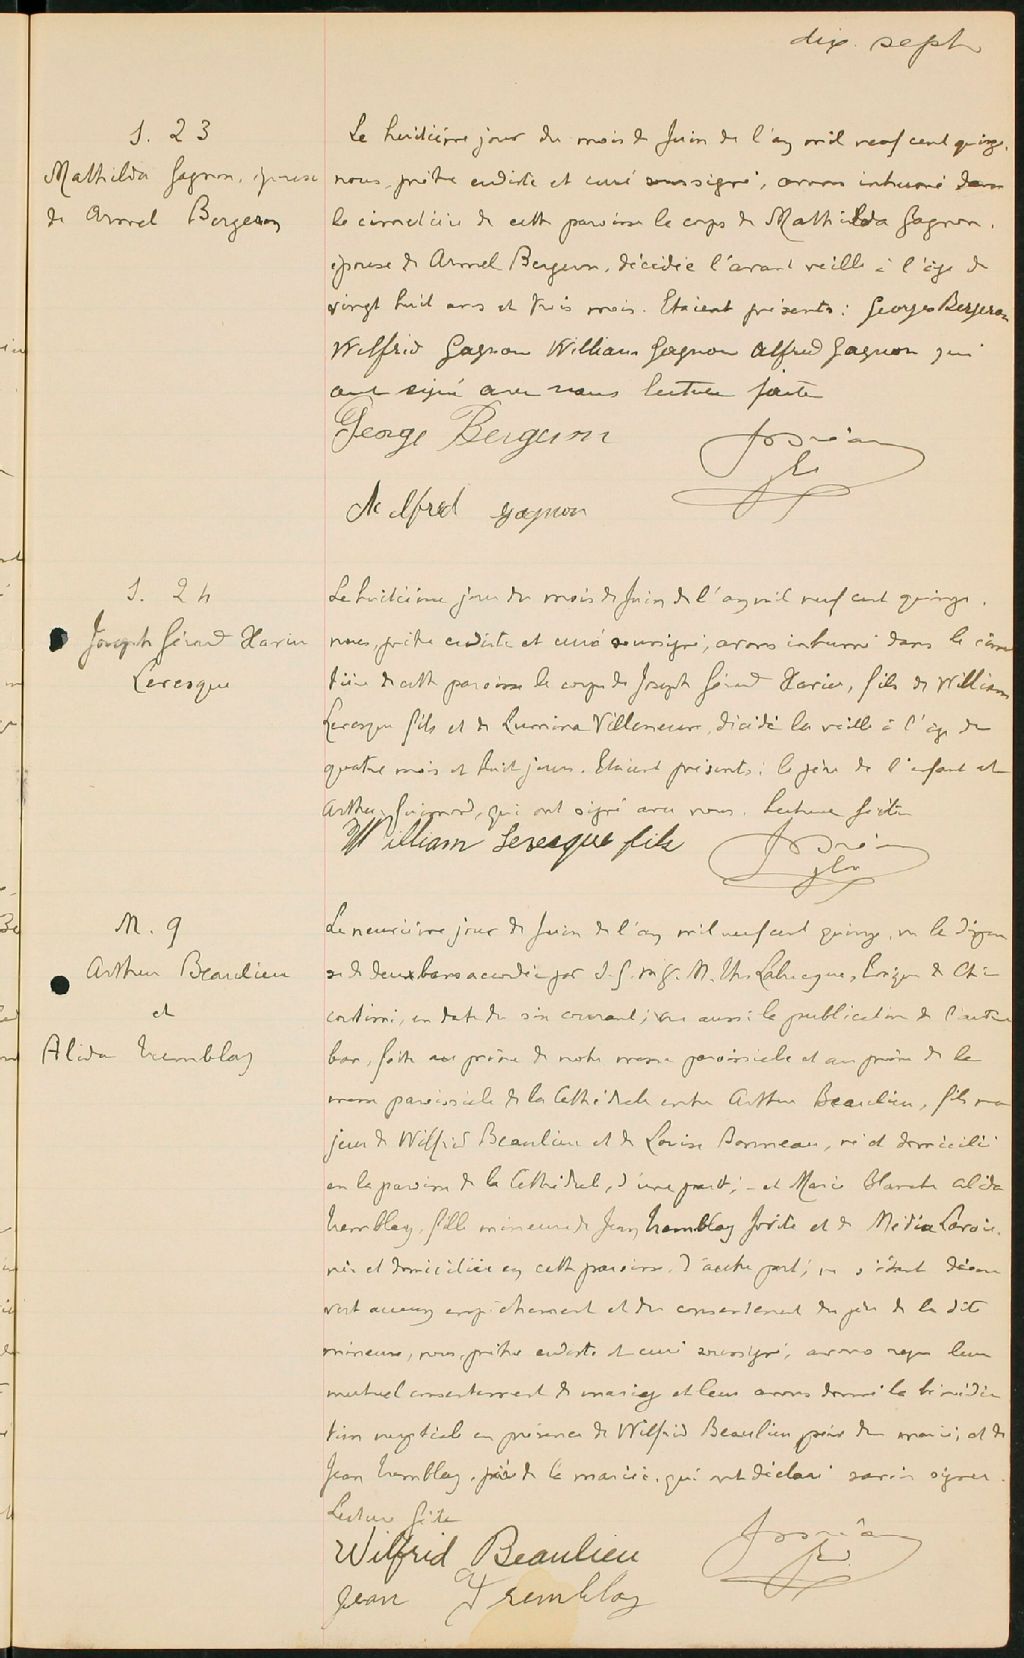 dix. sept
S. 23
Mathilda Gagnon, épouse
de Armel Bergeron
Le huitième jour du mois de Juin de l'an mil neuf cent quinze,
nous, prêtre eudiste et curé soussigné, avons inhumé dans
le cimetière de cette paroisse le corps de Mathilda Gagnon,
épouse de Armel Bergeron, décédée l'avant veille à l'âge de
vingt huit ans et trois mois. Etaient présents : Georges Bergeron
Wilfrid Gagnon William Gagnon Alfred Gagnon qui
ont signé avec nous lecture faite
George Bergeron
Alfred gagnon
S. 24
Joseph Gérard Xavier
Levesque
Le huitième jour du mois de Juin de l'an mil neuf cent quinze,
nous, prêtre eudiste et curé soussigné, avons inhumé dans le cime
tière de cette paroisse le corps de Joseph Gérard Xavier, fils de William
Levesque fils et de Villeneuve, décédé la veille à l'âge de
quatre mois et huit jours. Etaient présents : le père de l'enfant et
Arthur qui ont signé avec nous. Lecture faite
William Levesque fils
M. 9
Arthur Beaulieu
et
Alida Tremblay
Le neuvième jour de Juin de l'an mil neuf cent quinze, vu la dispen
se de deux bans accordée par S. G. Mgr. M. Ths Labrecque, évêque de Chi
coutimi, en date du six courant ; vu aussi la publication de l'autre
ban, faite au prône de notre messe paroissiale et au prône de la
messe paroissiale de la Cathédrale entre Arthur Beaulieu, fils ma
jeur de Wilfrid Beaulieu et de Louise Bonneau, né et domicilié
en la paroisse de la Cathédrale, d'une part ; - et Marie Blanche Alida
Tremblay, fille mineure de Jean Tremblay et de Média Lavoie,
née et domiciliée en cette paroisse, d'autre part ; ne s'étant décou
vert aucun empêchement et du consentement du père de la dite
mineure, nous, prêtre eudiste et curé soussigné, avons reçu leur
mutuel consentement de mariage et leur avons donné la bénédic
tion nuptiale en présence de Wilfrid Beaulieu père du marié, et de
Jean Tremblay, père de la mariée, qui ont déclaré savoir signer.
Lecture faite
Wilfrid Beaulieu
Jean Tremblay